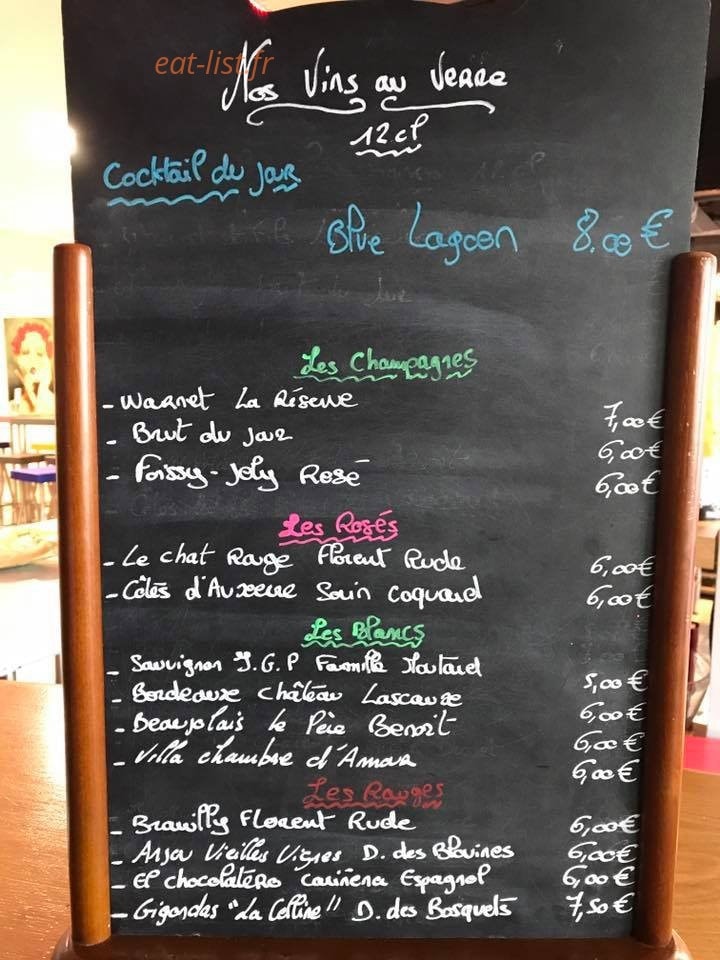 eat-list.fr
Nos Vins au Verre
12cl
Cocktail du jour
Blue Lagoon 8,00€
Les Champagnes
- Warnet La Réserve 7,00€
- Brut du jour 6,00€
- Foissy-Joly Rosé 6,00€
Les Rosés
- Le chat Rouge Florent Rude 6,00€
- Côtes d'Auxerre Sorin Coquard 6,00€
Les Blancs
- Sauvignon I.G.P Famille Moutard 5,00€
- Bordeaux Château Lascaux 6,00€
- Beaujolais le Père Benoit 6,00€
- Villa chambre d'Amour 6,00€
Les Rouges
- Brouilly Florent Rude 6,00€
- Anjou Vieilles Vignes D. des 6,00€
- El chocolatéro cariñena Espagnol 6,00€
- Gigondas "La Colline" D. des Bosquets 7,50€